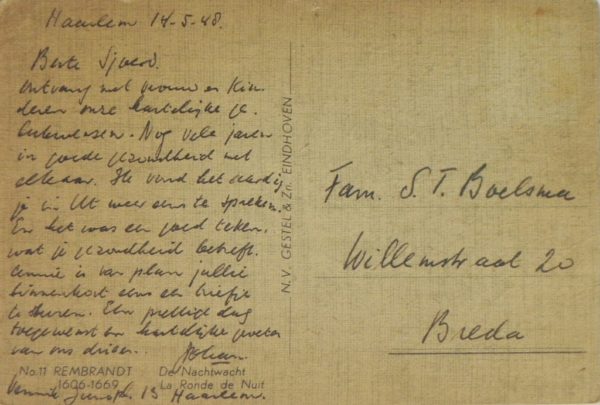 Haarlem 14-5-48.
Beste Sjoerd.
ontvang met vrouw en kin-
deren onze hartelijke ge-
lukwensen. Nog vele jaren
in goede gezondheid met
elkaar. Ik vond het aardig
je in Ut weer eens te spreken.
En het was een goed teken,
wat je gezondheid betreft.
Annie is van plan jullie
binnenkort eens een briefje
te sturen. Een prettige dag
toegewenst en hartelijke groeten
van ons drieën.
No.11 REMBRANDT De Nachtwacht
1606-1669 La Ronde de Nuit
13 Haarlem.
N.V. GESTEL & Zn. EINDHOVEN
Fam. S. T. Boelsma
Willemstraat 20
Breda